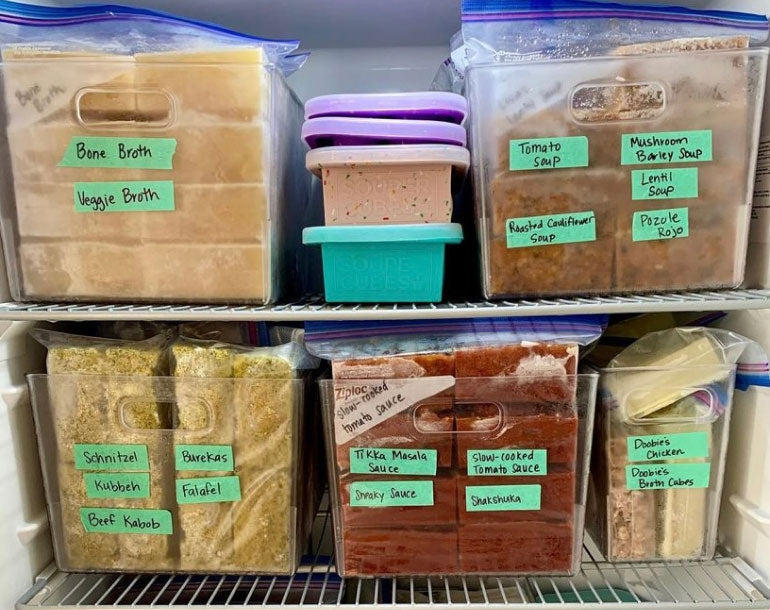 Bone Broth
Bone Broth
Veggie Broth
SOUPER CUBES
SOUPER CUBES
Tomato
Soup
Mushroom
Barley Soup
Lentil
Soup
Roasted Cauliflower
Soup
Pozole
Rojo
Schnitzel
Burekas
Kubbeh
Falafel
Beef Kabob
Ziploc
slow-cooked
tomato sauce
Tikka Masala
Sauce
Slow-cooked
Tomato Sauce
Sneaky Sauce
Shakshuka
Doobie's
Chicken
Doobie's
Broth Cubes